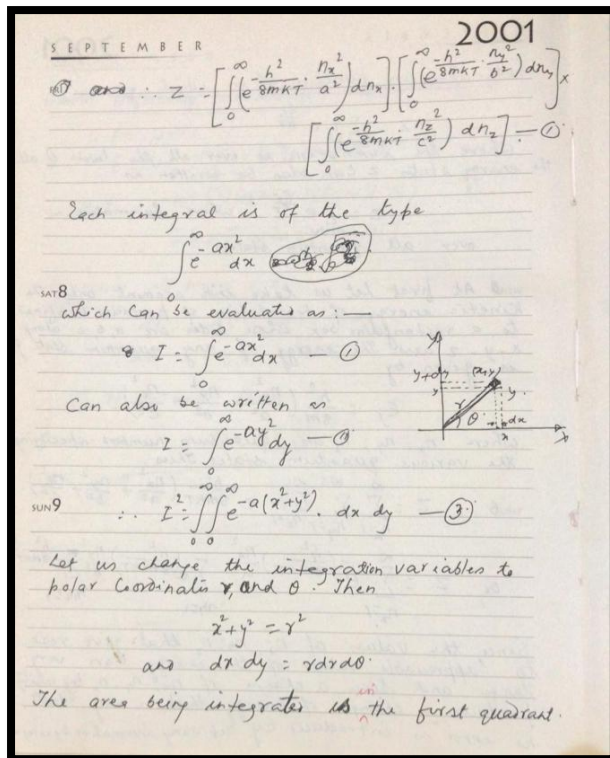 SEPTEMBER 2001
∴ Z = [∫₀^∞ (e^{-h²/8mKT · nx²/a²}) dnx] · [∫₀^∞ (e^{-h²/8mKT · ny²/b²}) dny] ×
[∫₀^∞ (e^{-h²/8mKT · nz²/c²}) dnz] — ①
Each integral is of the type
∫₀^∞ e^{-ax²} dx
SAT 8
which Can be evaluated as : —
I = ∫₀^∞ e^{-ax²} dx — ①
Can also be written as
I = ∫₀^∞ e^{-ay²} dy — ⑪
y
y+dy (x,y)
y y
r
θ dx
x x
SUN 9
∴ I² = ∫₀^∞ ∫₀^∞ e^{-a(x²+y²)} · dx dy — ③
Let us change the integration variables to
polar Coordinates r, and θ. Then
x²+y² = r²
and dx dy = r dr dθ.
The area being integrated is in the first quadrant.